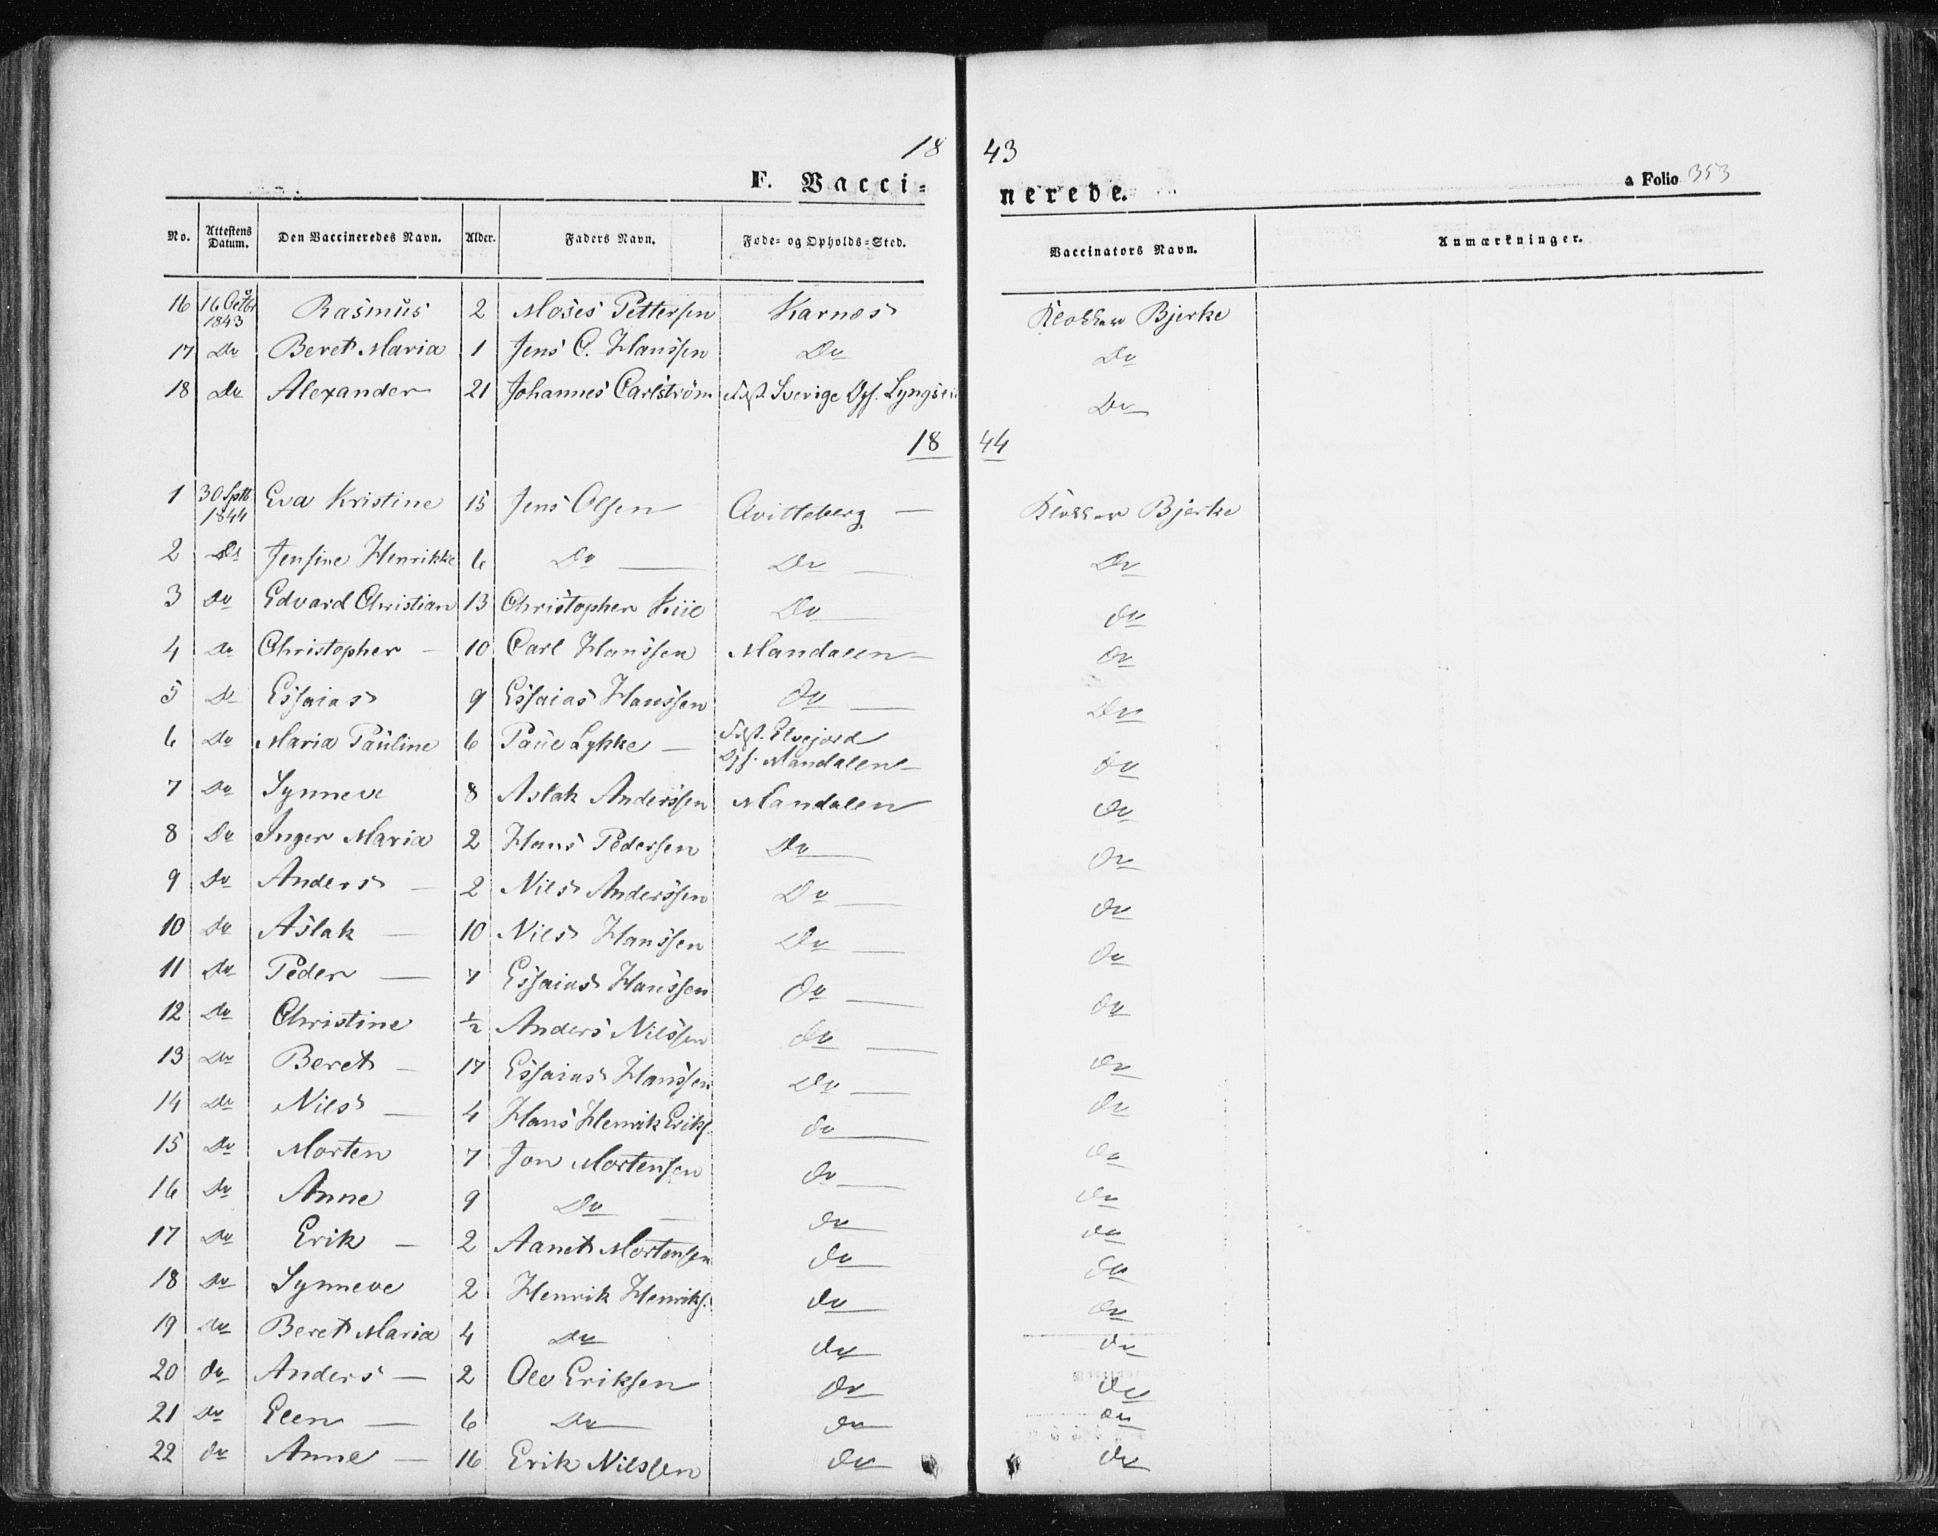 18 43
F. Vacci- nerede. a Folio 353
No. Attestens Datum. Den Vaccineredes Navn. Alder. Faders Navn. Føde- og Opholds-Sted. Vaccinators Navn. Anmærkninger.
16 16 Octbr 1843 Rasmus 2 Moses Pettersen Karnes Klokker Bjerke
17 Do Beret Maria 1 Jens C. Hanssen Do Do
18 Do Alexander 21 Johannes Carlström Fdst. Sverige Opf. Lyngsei Do
18 44
1 30 Sptb 1844 Eva Kristine 15 Jens Olsen Qvitteberg — Klokker Bjerke
2 Do Jensine Henrikke 6 Do — Do — Do
3 Do Edvard Christian 13 Christopher Kiil Do — do
4 Do Christopher — 10 Carl Hanssen Mandalen — do
5 Do Essaias 9 Essaias Hanssen do — Do
6 Do Maria Pauline 6 Paul Lykke — Fdst. Elvejord Opf. Mandalen — do
7 Do Synneve 8 Aslak Anderssen Mandalen do
8 Do Inger Maria 2 Hans Pedersen Do — do
9 Do Anders — 2 Nils Anderssen Do — do
10 Do Aslak — 10 Nils Hanssen Do — do
11 Do Peder — 7 Essaias Hanssen do — do
12 Do Christine ½ Anders Nilssen do — do
13 Do Beret — 17 Essaias Hanssen Do — do
14 Do Nils — 4 Hans Henrik Eriks. do — do
15 Do Morten 7 Jon Mortensen do — do
16 Do Anne 9 Do — do do
17 Do Erik — 2 Aanet Mortensen do do
18 Do Synneve 2 Henrik Henriks. do do
19 do Beret Maria 4 Do do do
20 do Anders — 2 Ole Eriksen do do
21 Do Elen — 6 Do — do do
22 do Anne — 16 Erik Nilssen do do